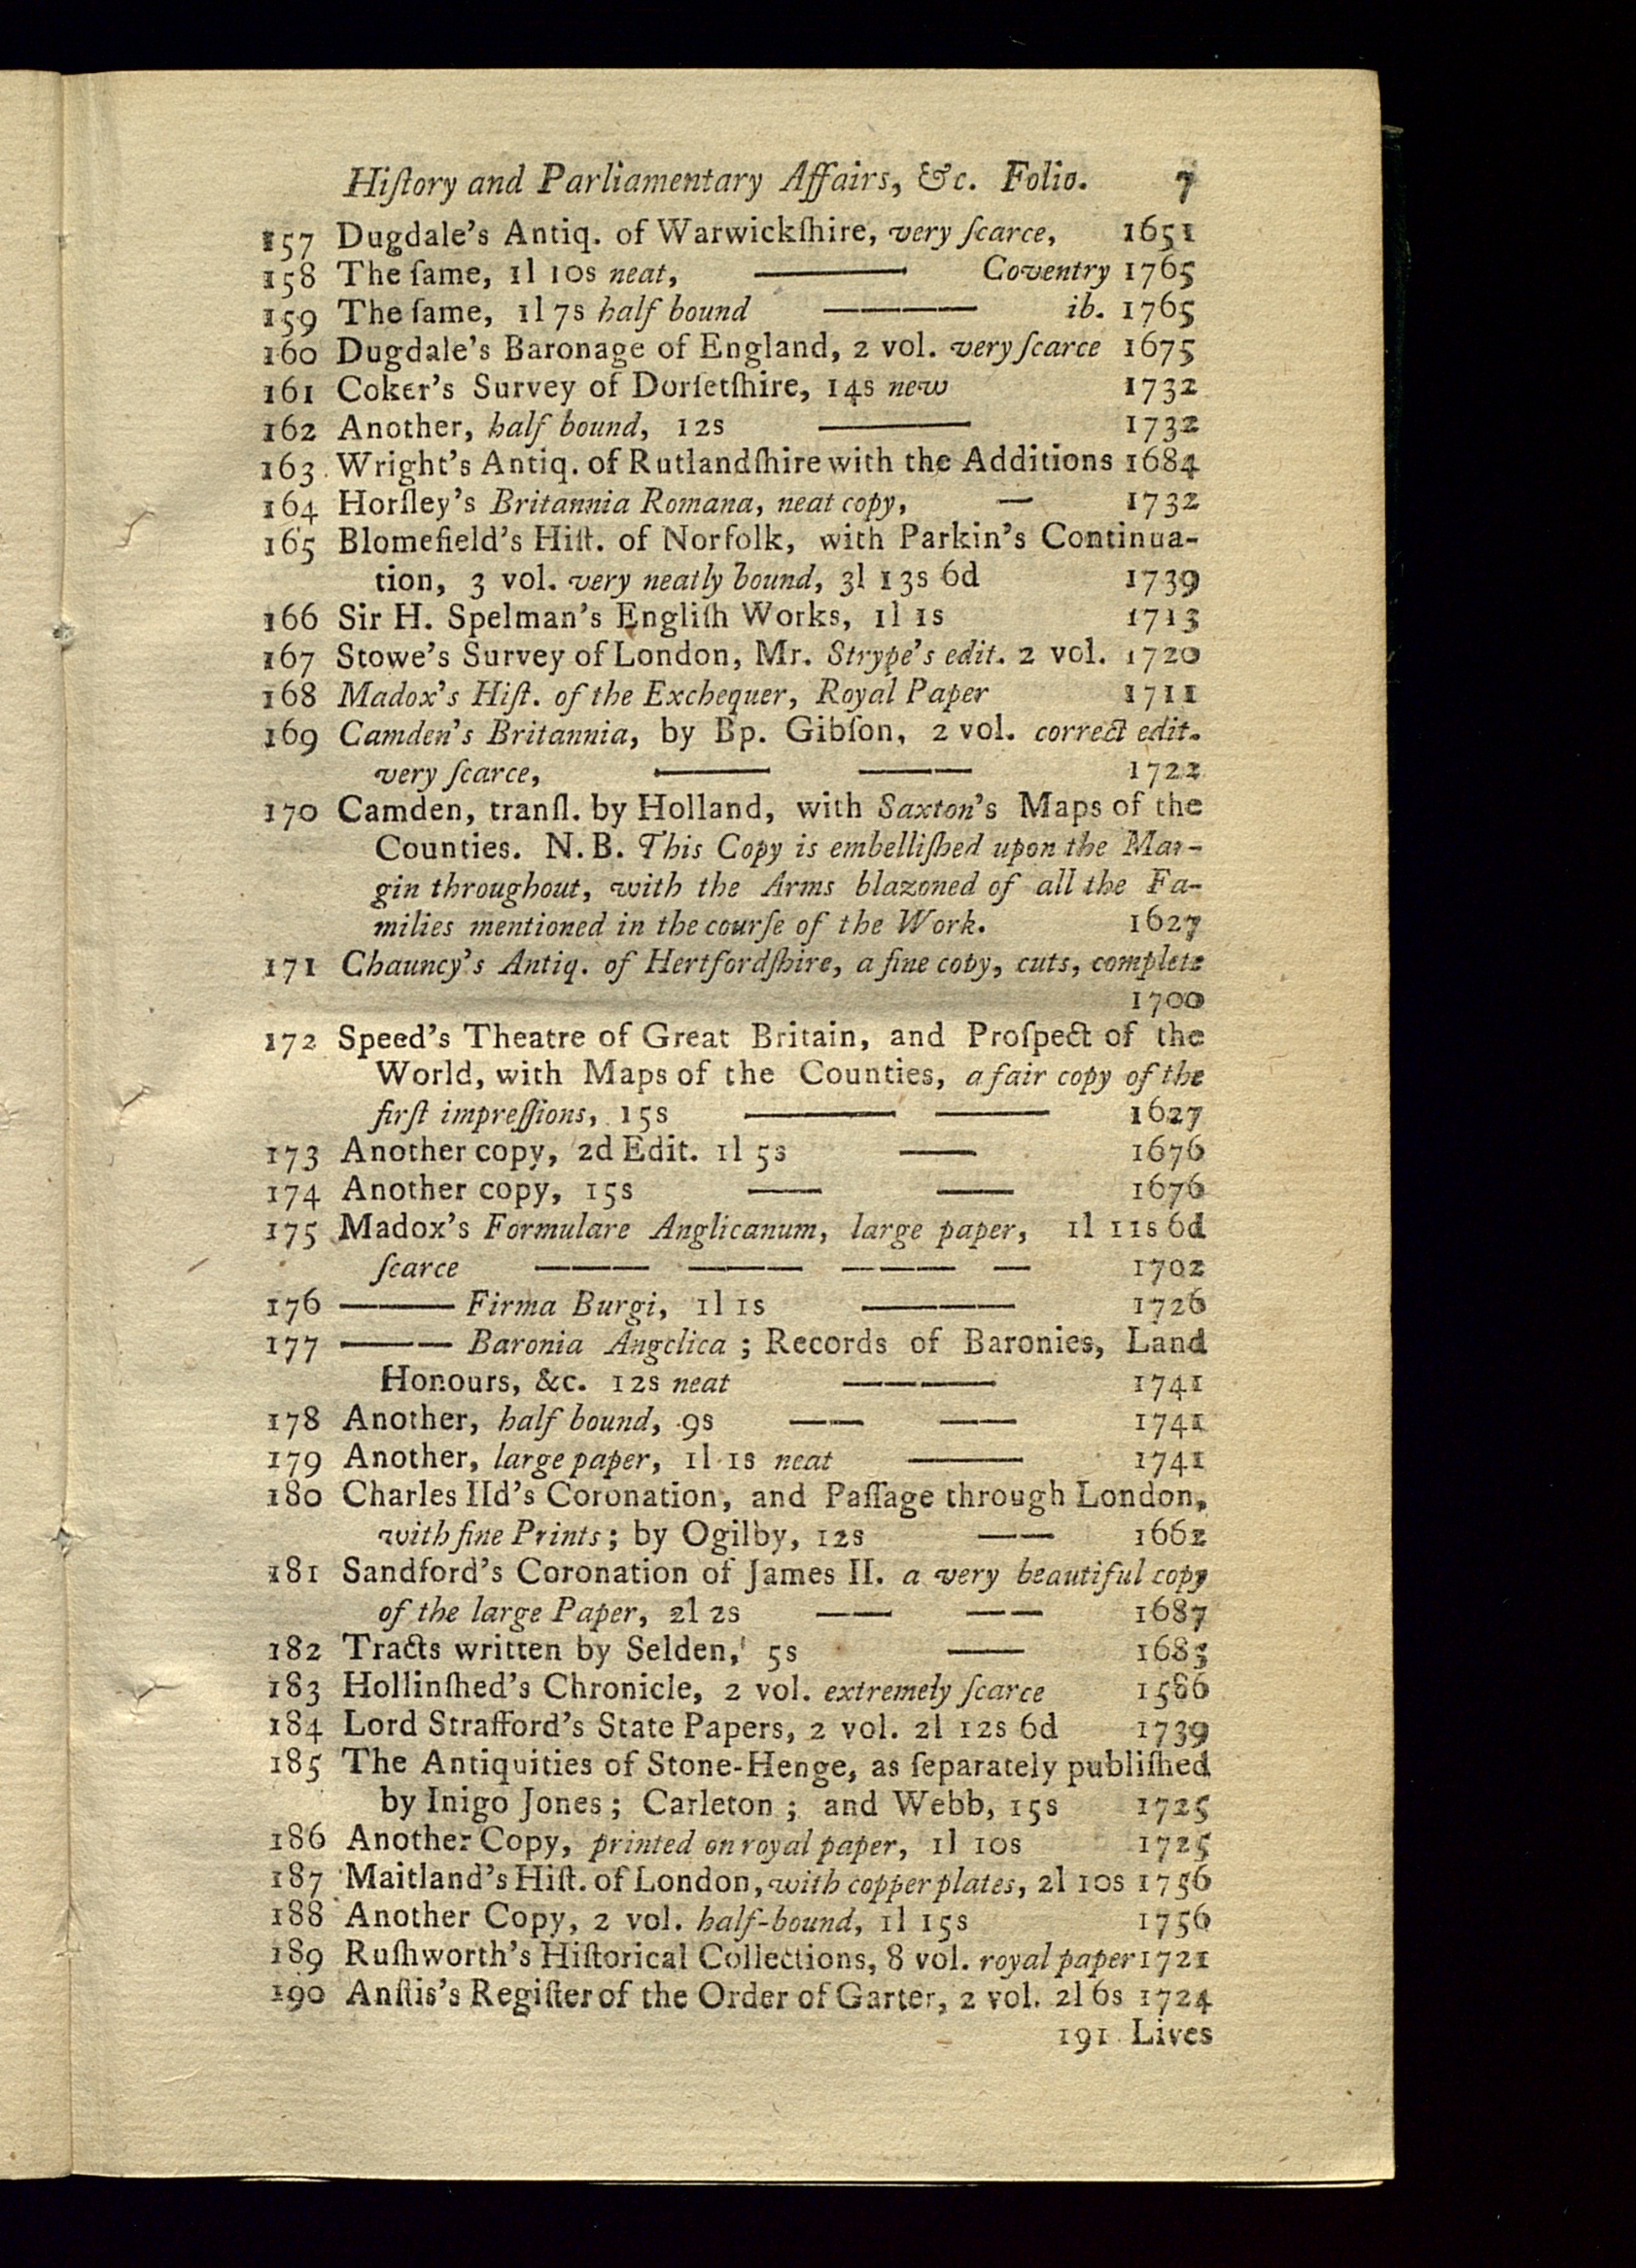 Hiſtory and Parliamentary Affairs, &c. Folio. 7
157 Dugdale's Antiq. of Warwickſhire, very ſcarce, 1651
158 The ſame, 1l 10s neat, ——— Coventry 1765
159 The ſame, 1l 7s half bound ——— ib. 1765
160 Dugdale's Baronage of England, 2 vol. very ſcarce 1675
161 Coker's Survey of Dorſetſhire, 14s new 1732
162 Another, half bound, 12s ——— 1732
163 Wright's Antiq. of Rutlandſhire with the Additions 1684
164 Horſley's Britannia Romana, neat copy, — 1732
165 Blomefield's Hiſt. of Norfolk, with Parkin's Continua-
tion, 3 vol. very neatly bound, 3l 13s 6d 1739
166 Sir H. Spelman's Engliſh Works, 1l 1s 1713
167 Stowe's Survey of London, Mr. Strype's edit. 2 vol. 1720
168 Madox's Hiſt. of the Exchequer, Royal Paper 1711
169 Camden's Britannia, by Bp. Gibſon, 2 vol. correct edit.
very ſcarce, —— —— 1722
170 Camden, tranſl. by Holland, with Saxton's Maps of the
Counties. N.B. This Copy is embelliſhed upon the Mar-
gin throughout, with the Arms blazoned of all the Fa-
milies mentioned in the courſe of the Work. 1627
171 Chauncy's Antiq. of Hertfordſhire, a fine copy, cuts, complete
1700
172 Speed's Theatre of Great Britain, and Proſpect of the
World, with Maps of the Counties, a fair copy of the
firſt impreſſions, 15s ——— ——— 1627
173 Another copy, 2d Edit. 1l 5s —— 1676
174 Another copy, 15s —— —— 1676
175 Madox's Formulare Anglicanum, large paper, 1l 11s 6d
ſcarce ——— ——— ——— — 1702
176 ——— Firma Burgi, 1l 1s ——— 1726
177 ——— Baronia Angelica ; Records of Baronies, Land
Honours, &c. 12s neat ——— 1741
178 Another, half bound, 9s —— —— 1741
179 Another, large paper, 1l 1s neat ——— 1741
180 Charles IId's Coronation, and Paſſage through London,
with fine Prints ; by Ogilby, 12s —— 1662
181 Sandford's Coronation of James II. a very beautiful copy
of the large Paper, 2l 2s —— —— 1687
182 Tracts written by Selden, 5s —— 1683
183 Hollinſhed's Chronicle, 2 vol. extremely ſcarce 1586
184 Lord Strafford's State Papers, 2 vol. 2l 12s 6d 1739
185 The Antiquities of Stone-Henge, as ſeparately publiſhed
by Inigo Jones ; Carleton ; and Webb, 15s 1725
186 Another Copy, printed on royal paper, 1l 10s 1725
187 Maitland's Hiſt. of London, with copper plates, 2l 10s 1756
188 Another Copy, 2 vol. half-bound, 1l 15s 1756
189 Ruſhworth's Hiſtorical Collections, 8 vol. royal paper 1721
190 Anſtis's Regiſter of the Order of Garter, 2 vol. 2l 6s 1724
191 Lives